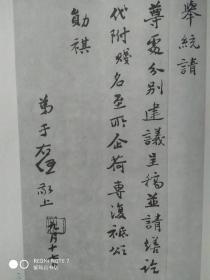 舉統請
尊處分別建議呈稿並請繕訖
代附賤名至所企荷專復祗頌
勛祺
弟于右任敬上
九月十
REDMI NOTE 7
AI DUAL CAMERA